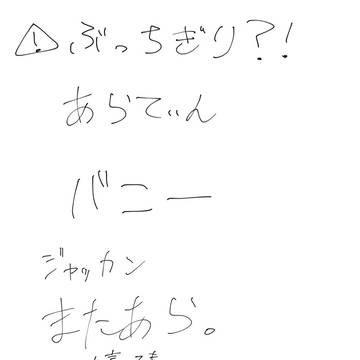 ⚠ぶっちぎり?!
あらてぃん
バニー
ジャッカン
またあら。